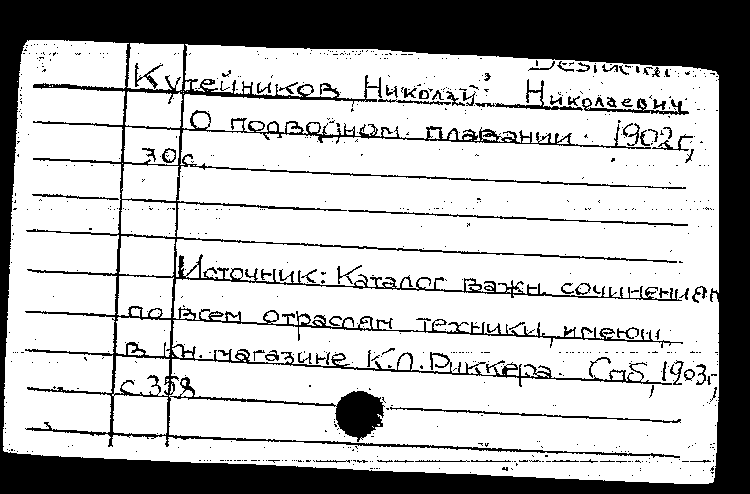 Кутейников, Николай Николаевич
О подводном плавании. 1902г,
30с.
Источник: Каталог важн. сочинениям
по всем отраслям техники, имеющ.
в кн. магазине К.Л.Риккера. Спб, 1903г,
с.358